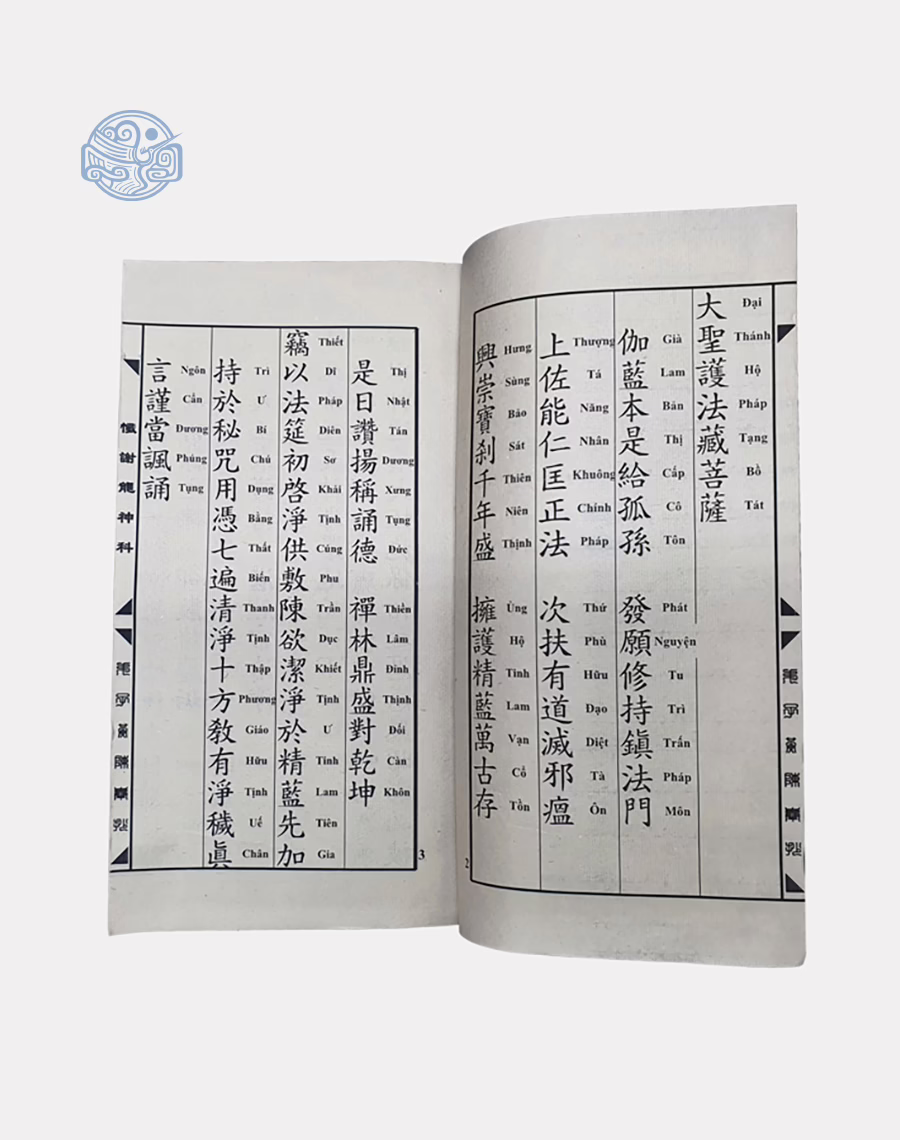 大聖護法藏菩薩
Đại Thánh Hộ Pháp Tạng Bồ Tát
伽藍本是給孤孫 發願修持鎮法門
Già Lam Bản Thị Cấp Cô Tôn Phát Nguyện Tu Trì Trấn Pháp Môn
上佐能仁匡正法 次扶有道滅邪瘟
Thượng Tá Năng Nhân Khuông Chính Pháp Thứ Phù Hữu Đạo Diệt Tà Ôn
興崇寶刹千年盛 擁護精藍萬古存
Hưng Sùng Bảo Sát Thiên Niên Thịnh Ủng Hộ Tinh Lam Vạn Cổ Tồn
2
是日讚揚稱誦德 禪林鼎盛對乾坤
Thị Nhật Tán Dương Xưng Tụng Đức Thiền Lâm Đỉnh Thịnh Đối Càn Khôn
竊以法筵初啓淨供敷陳欲潔淨於精藍先加
Thiết Dĩ Pháp Diên Sơ Khải Tịnh Cúng Phu Trần Dục Khiết Tịnh Ư Tinh Lam Tiên Gia
持於秘咒用憑七遍清淨十方教有淨穢眞
Trì Ư Bí Chú Dụng Bằng Thất Biến Thanh Tịnh Thập Phương Giáo Hữu Tịnh Uế Chân
言謹當諷誦
Ngôn Cẩn Đương Phúng Tụng
懺謝龍神科
3